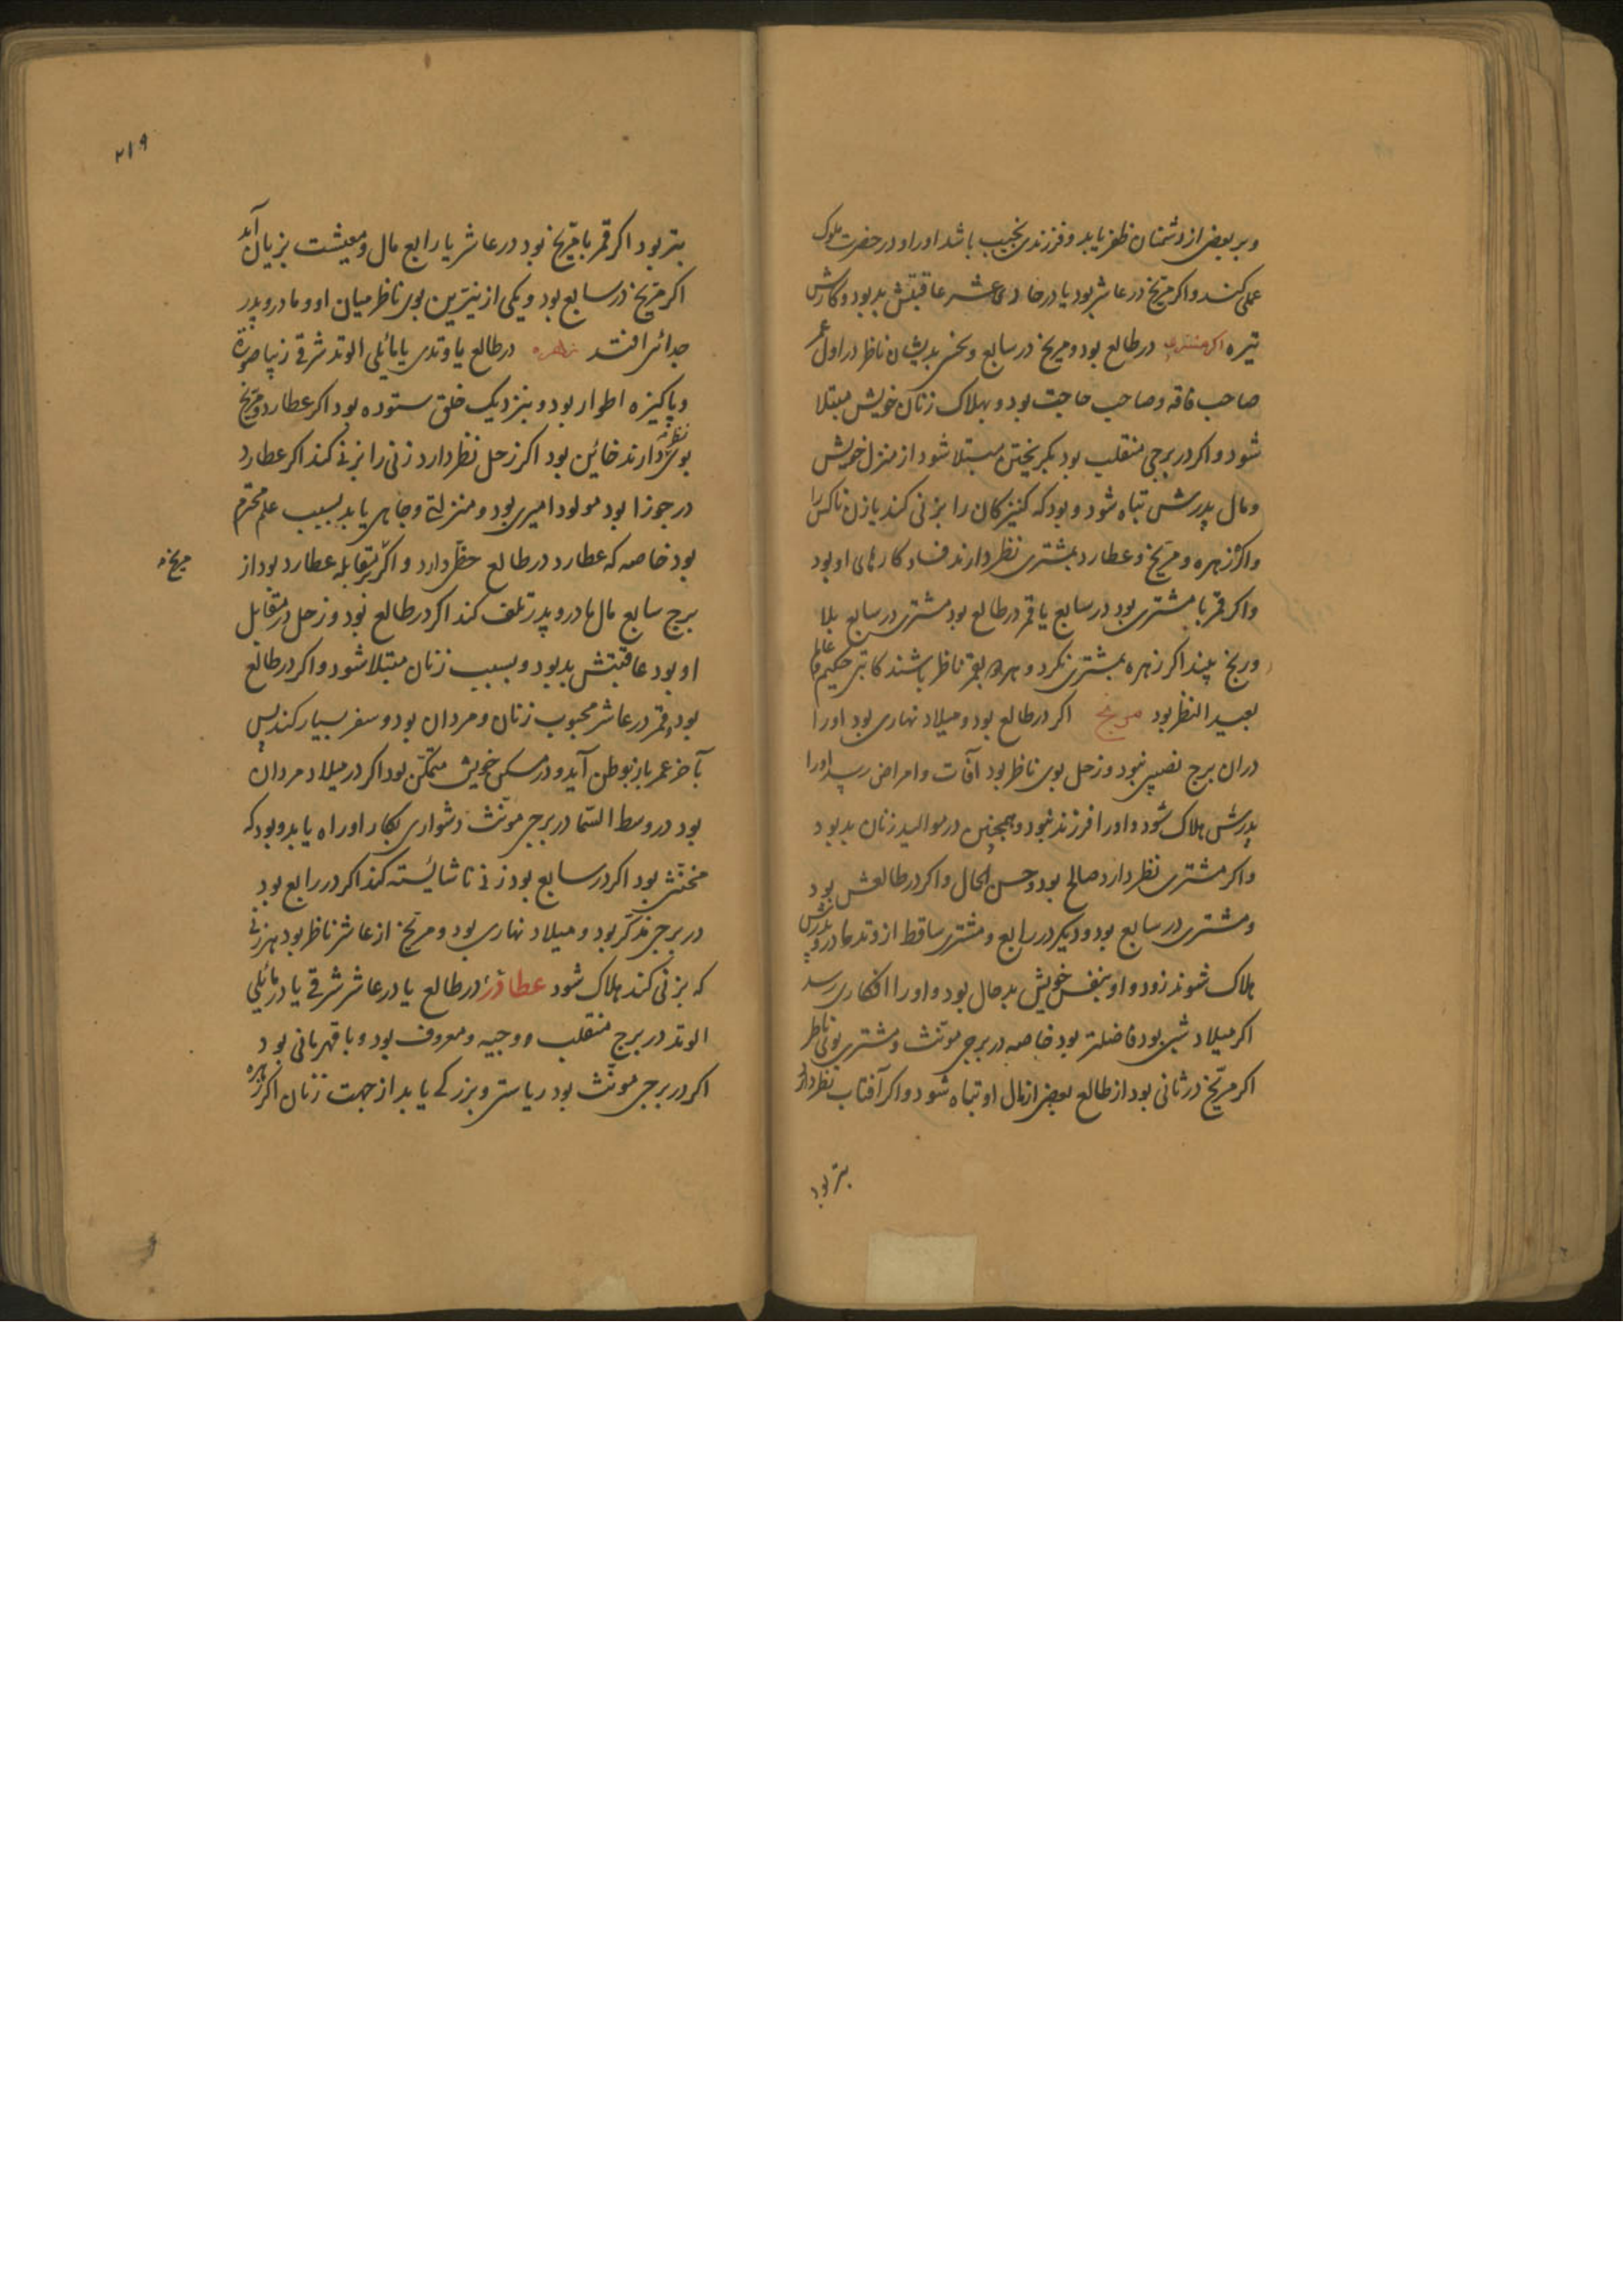 وبر بعضی از دشمنان ظفر یابد و فرزندی نجیب باشد اورا و در حضرت ملوک
عملی کند و اکر مریخ در عاشر بود یا در حادی عشر عاقبتش بد بود و کارش
تیره اکر مشتری در طالع بود و مریخ در سابع و نحس بدیشان ناظر در اول عمر
صاحب فاقه وصاحب حاجت بود و بهلاک زنان خویش مبتلا
شود و اکر در برجی منقلب بود بکریختن مبتلا شود از منزل خویش
ومال پدرش تباه شود و بود که کنیزکان را بزنی کند یا زن ناکس را
واکر زهره و مریخ و عطارد بمشتری نظر دارند فساد کارهای او بود
واکر قمر با مشتری بود در سابع یا قمر در طالع بود مشتری در سابع بلا
ورنج بیند اکر زهره بمشتری نکرد و هر دو بقمر ناظر باشند کاتبی حکیم عالم
بعید النظر بود مریخ اکر در طالع بود و میلاد نهاری بود اورا
دران برج نصیبی نبود و زحل بوی ناظر بود آفات و امراض رسد اورا
پدرش هلاک شود و اورا فرزند نبود و همچنین در موالید زنان بد بود
واکر مشتری نظر دارد صالح بود و حسن الحال و اکر در طالعش بود
ومشتری در سابع بود و دیکر در رابع و مشتری ساقط از وتد مادر و پدرش
هلاک شوند زود و او بنفس خویش بد حال بود و اورا افکاری رسد
اکر میلاد شبی بود فاضلتر بود خاصه در برجی مونث و مشتری بوی ناظر
اکر مریخ در ثانی بود از طالع بعضی از مال او تباه شود و اکر آفتاب نظر دارد
بتر بود
۲۱۹
بتر بود اکر قمر با مریخ بود در عاشر یا رابع مال و معیشت بزیان آید
اکر مریخ در سابع بود و یکی از نیرین بوی ناظر میان او و مادر و پدر
جدائی افتد زهره در طالع یا وتدی یا مائلی الوتد شرقی زیبا صورة
وپاکیزه اطوار بود و بنزدیک خلق ستوده بود اکر عطارد و مریخ
بوی نظر دارند خائین بود اکر زحل نظر دارد زنی را بزنی کند اکر عطارد
در جوزا بود مولود امیری بود و منزلتی وجاهی یابد بسبب علم محترم
بود خاصه که عطارد در طالع حظی دارد و اکر بمقابله عطارد بود از
مریخ
برج سابع مال مادر و پدر تلف کند اکر در طالع بود و زحل در مقابل
او بود عاقبتش بد بود و بسبب زنان مبتلا شود و اکر در طالع
بود و قمر در عاشر محبوب زنان و مردان بود و سفر بسیار کند پس
بآخر عمر باز بوطن آید و در مسکن خویش متمکن بود اکر در میلاد مردان
بود در وسط السما در برجی مونث دشواری بکار او راه یابد و بود که
مخنث بود اکر در سابع بود زنی ناشائسته کند اکر در رابع بود
در برجی مذکر بود و میلاد نهاری بود و مریخ از عاشر ناظر بود هر زنی
که بزنی کند هلاک شود عطارد در طالع یا در عاشر شرقی یا در مائلی
الوتد در برج منقلب ووجیه ومعروف بود وبا قهرمانی بود
اکر در برجی مونث بود ریاستی وبزرکی یابد از جهت زنان اکر زهره